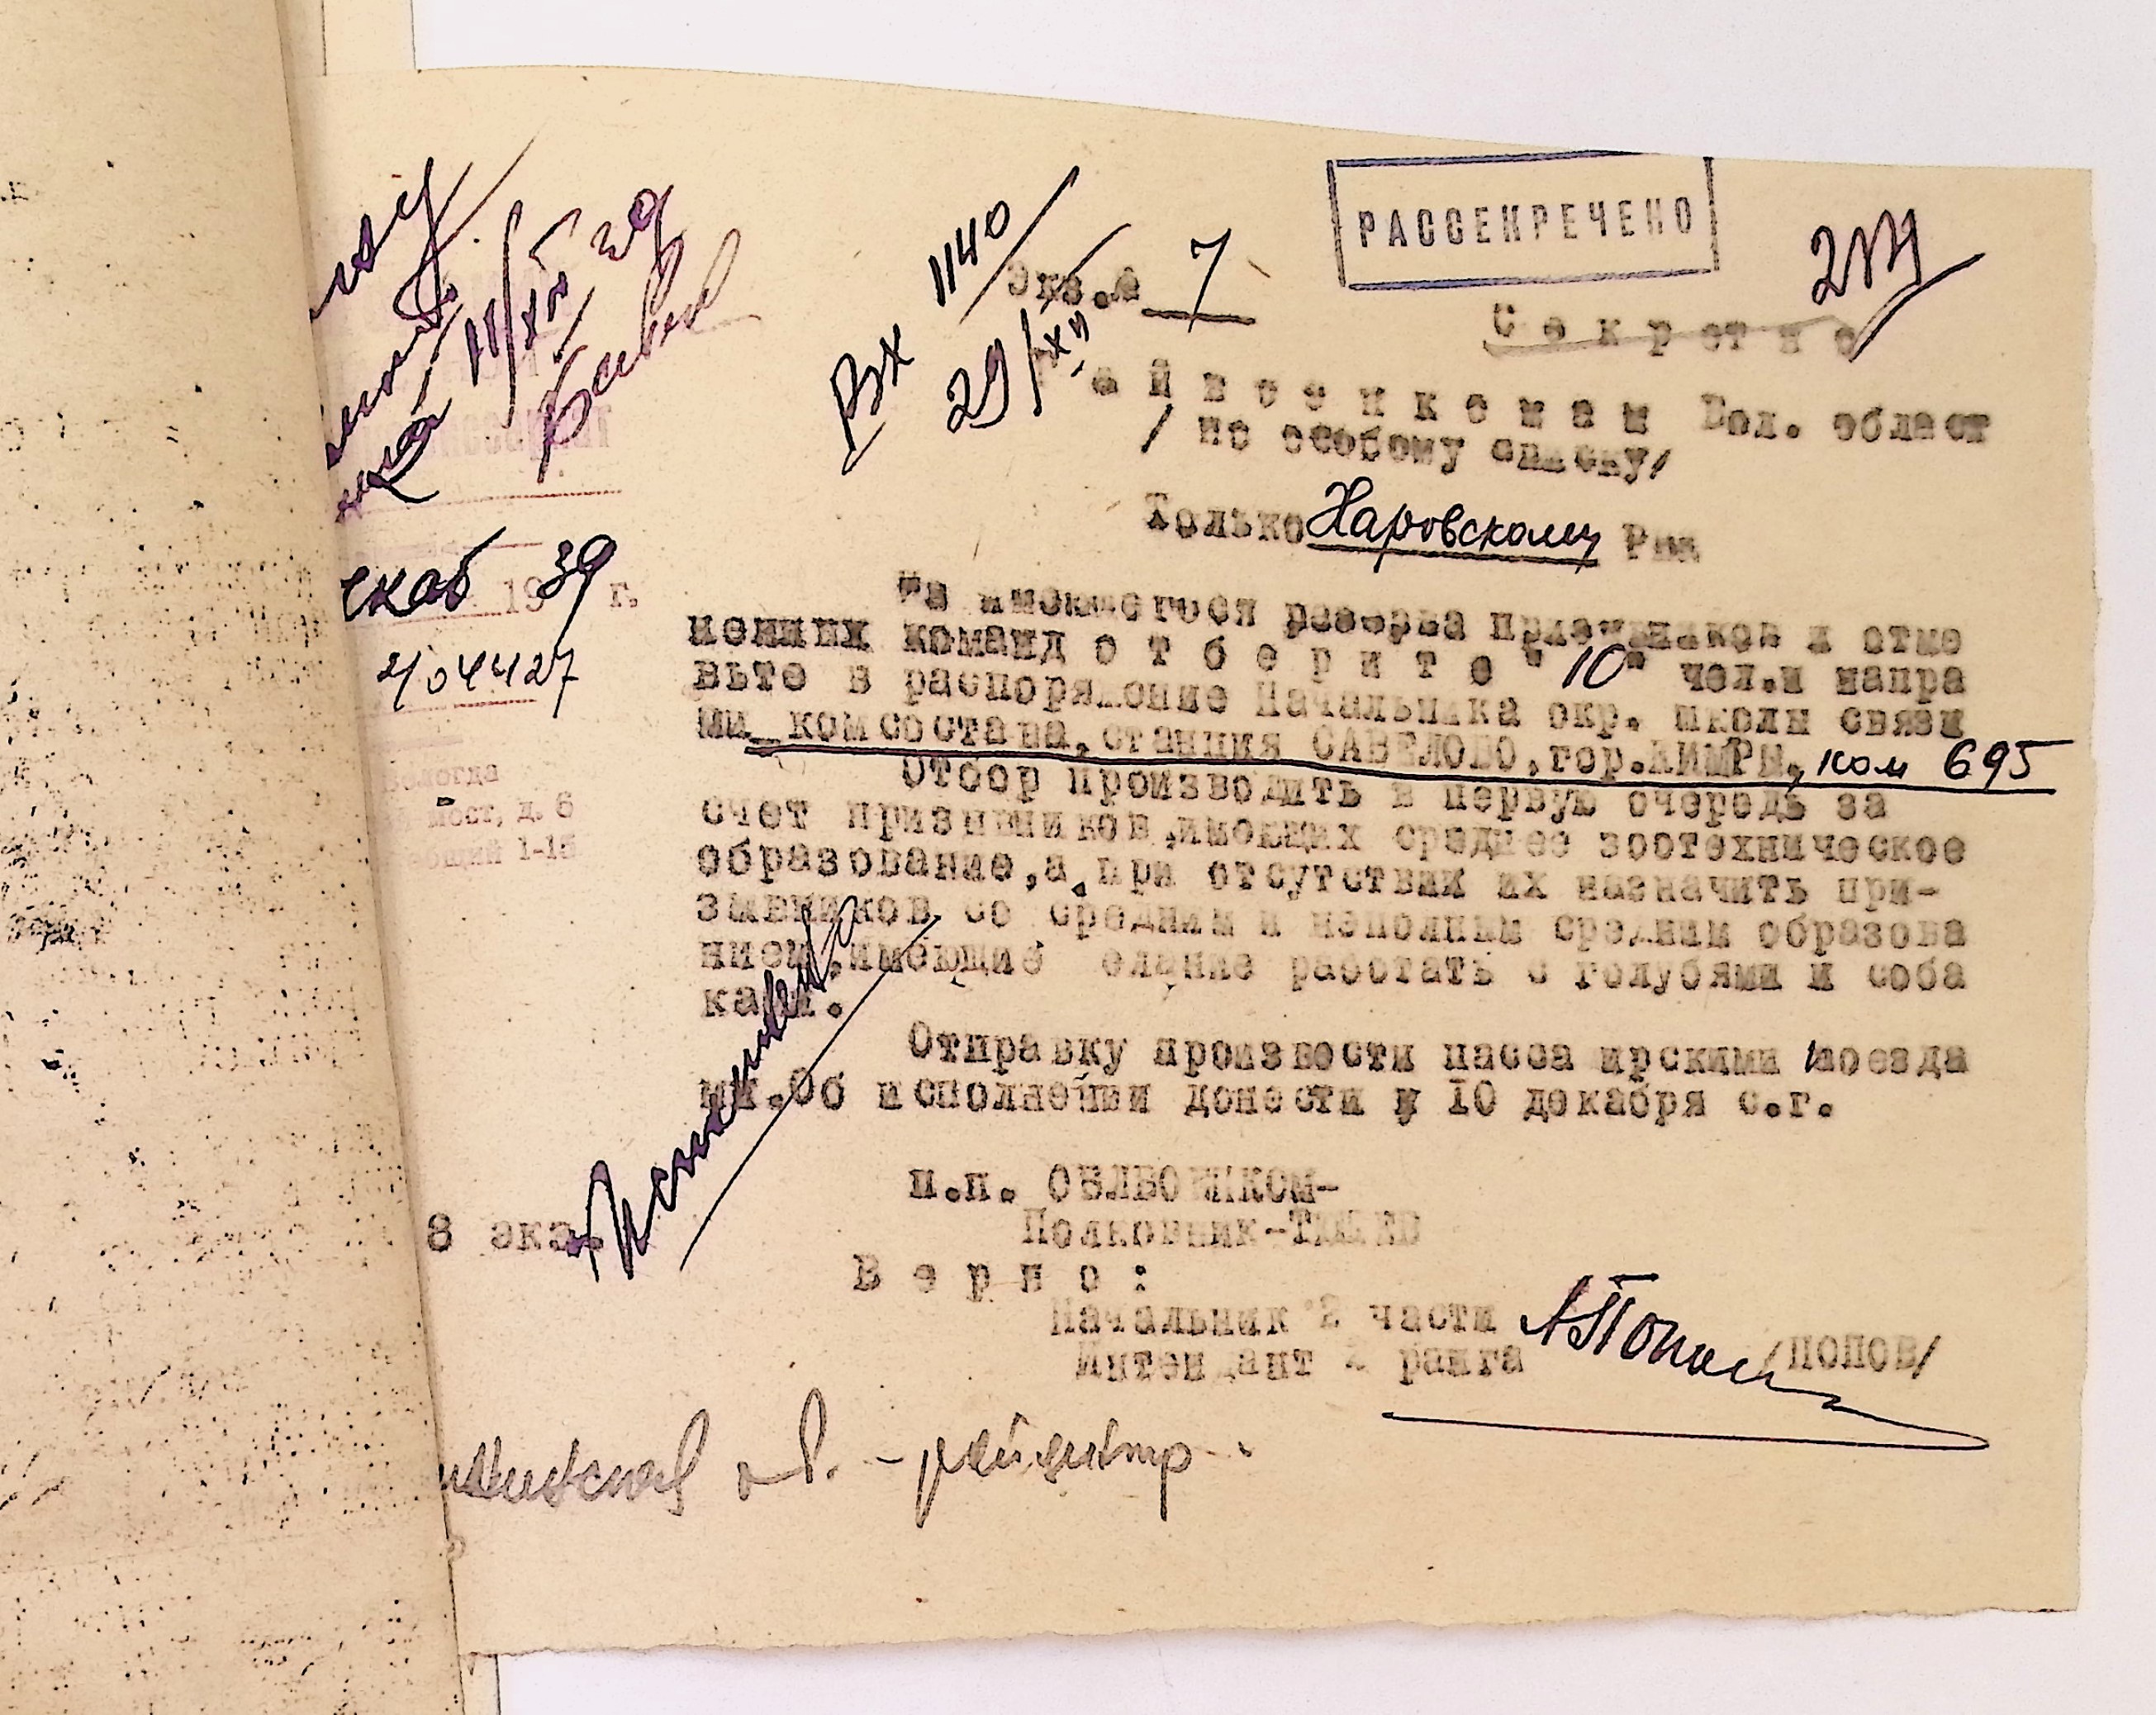 РАССЕКРЕЧЕНО
Экз.№ 7
Вх 1140
29/XII
11/XII 39
Секретно
айвоенкомам Вол. област
/ по особому списку/
Только Харовскому Рвк
екаб 1939 г.
404427
Вологда
мост, д. 6
1-15
Из имеющегося резерва призывников и отме
ненных команд отберите "10" чел.и напра
вьте в распоряжение Начальника окр. школы связи
мл комсостава,станция САВЕЛОВО,гор.КИМРЫ, ком 695
Отбор производить в первую очередь за
счет призывников,имеющих среднее зоотехническое
образование,а при отсутствии их назначить при-
зывников со средним и неполным средним образова
нием,имеющие елание работать с голубями и соба
ками.
Отправку произвести пасса ирскими поезда
ми.Об исполнении донести к 10 декабря с.г.
п.п. ОБЛВОЕНКОМ-
Полковник-
8 экз.
Верно:
Начальник 2 части
Интендант 2 ранга /ПОПОВ/